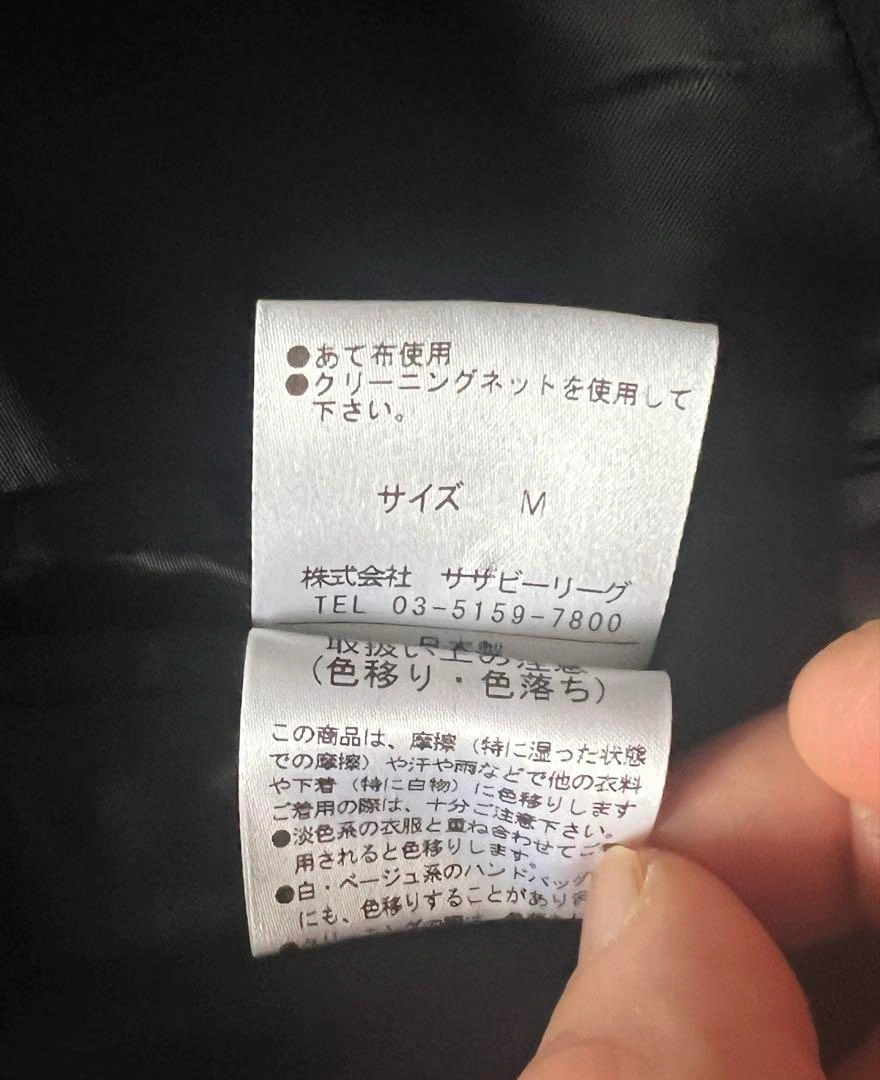 ●あて布使用
●クリーニングネットを使用して
下さい。
サイズ M
株式会社 サザビーリーグ
TEL 03-5159-7800
取扱い上の注意
(色移り・色落ち)
この商品は、摩擦(特に湿った状態
での摩擦)や汗や雨などで他の衣料
や下着(特に白物)に色移りします
ご着用の際は、十分ご注意下さい。
●淡色系の衣服と重ね合わせてご
用されると色移りします。
●白・ベージュ系のハンドバッグ
にも、色移りすることがあり